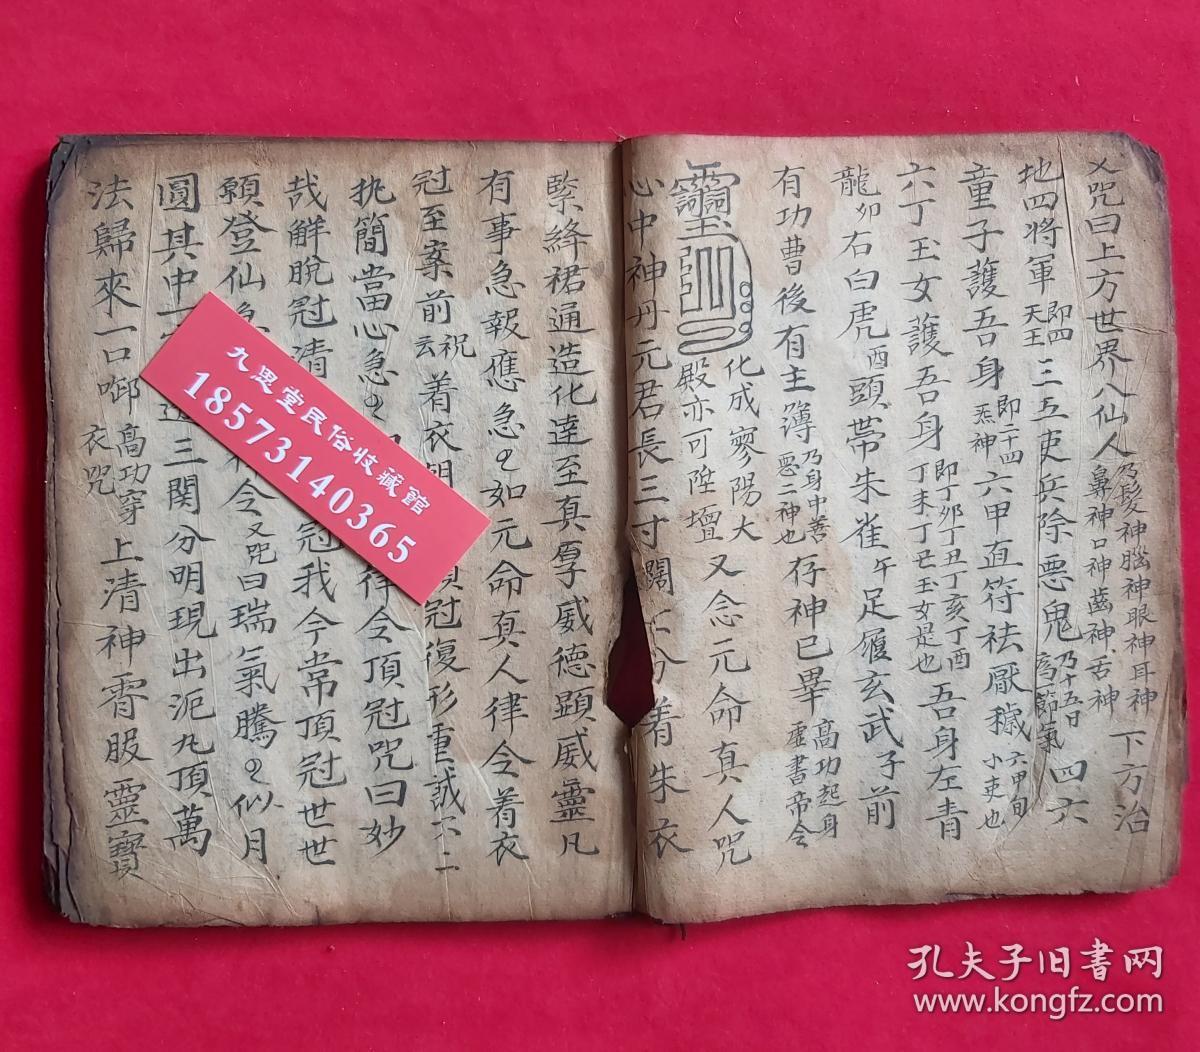 又咒曰上方世界八仙人乃髮神腦神眼神耳神鼻神口神齒神舌神下方治
地四將軍即四天王三五吏兵除惡鬼乃十五日節氣四六
童子護吾身即二十四炁神六甲直符祛厭穢六甲旬小吏也
六丁玉女護吾身即丁卯丁丑丁亥丁酉丁未丁巳玉女是也吾身左青
龍卯右白虎酉頭帶朱雀午足履玄武子前
有功曹後有主簿乃身中善惡二神也存神已畢高功起身虛書帝令
化成寥陽大殿亦可陞壇又念元命真人咒
心中神丹元君長三寸闊 分着朱衣
緊絳裙通造化達至真厚威德顯威靈凡
有事急報應急々如元命真人律令着衣
冠至案前祝云着衣 頂冠復形重誠不二
执簡當心急々 律令頂冠咒曰妙
哉解脫冠清 冠我今常頂冠世世
願登仙急 令又咒曰瑞氣騰々似月
圓其中 三關分明現出泥丸頂萬
法歸來一口啣高功穿衣咒上清神霄服靈寶
九思堂民俗收藏館
18573140365
孔夫子旧书网
www.kongfz.com